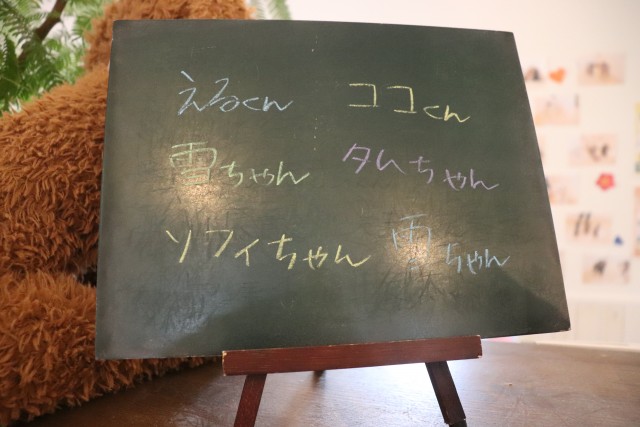 えるくん ココくん
雪ちゃん タムちゃん
ソフィちゃん 雨ちゃん